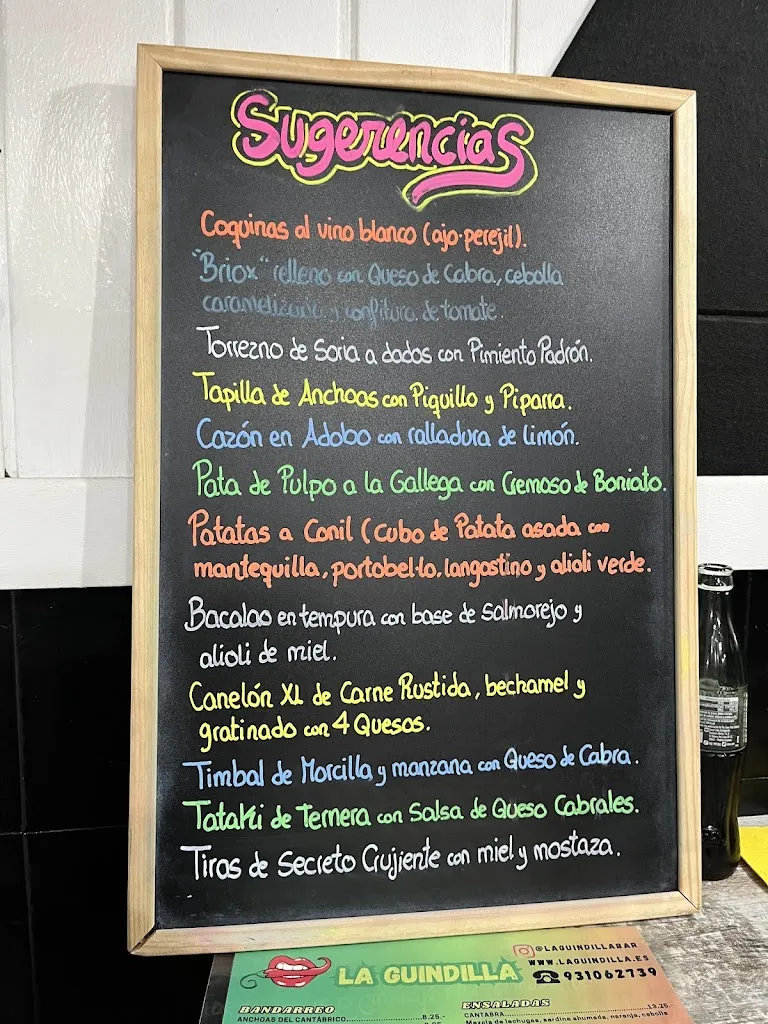 Sugerencias
Coquinas al vino blanco (ajo-perejil).
"Briox" relleno con Queso de Cabra, cebolla
caramelizada y confitura de tomate.
Torrezno de Soria a dados con Pimiento Padrón.
Tapilla de Anchoas con Piquillo y Piparra.
Cazón en Adobo con ralladura de limón.
Pata de Pulpo a la Gallega con Cremoso de Boniato.
Patatas a Conil (Cubo de Patata asada con
mantequilla, portobel·lo, langostino y alioli verde.
Bacalao en tempura con base de Salmorejo y
alioli de miel.
Canelón XL de Carne Rustida, bechamel y
gratinado con 4 Quesos.
Timbal de Morcilla y manzana con Queso de Cabra.
Tataki de Ternera con Salsa de Queso Cabrales.
Tiras de Secreto Crujiente con miel y mostaza.
@LAGUINDILLABAR
WWW.LAGUINDILLA.ES
LA GUINDILLA
931062739
BANDARREO
ANCHOAS DEL CANTÁBRICO 8.25.-
ENSALADAS
CANTABRA 13.25.-
Mezcla de lechugas, sardina ahumada, naranja, cebolla